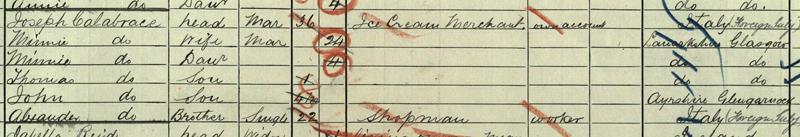 Annie do Daur 4 do do.
Joseph Calabrace head Mar 36 Ice Cream Merchant. own account Italy Foreign Italy
Minnie do Wife Mar 24 Lanarkshire Glasgow
Minnie do Daur 4 do do
Thomas do Son 1 do do
John do Son Ayrshire Glengarnock
Alexander do Brother Single 22 Shopman worker Italy Foreign Italy
Reid head